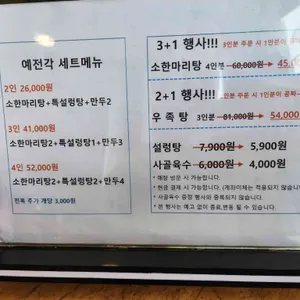 예전각 세트메뉴
2인 26,000원
소한마리탕+특설렁탕+만두2
3인 41,000원
소한마리탕2+특설렁탕1+만두3
4인 52,000원
소한마리탕2+특설렁탕2+만두4
전복 추가 개당 3,000원
3+1 행사!!! 3인분 주문 시 1인분이
소한마리탕 4인분 60,000원→45,
2+1 행사!!! 2인분 주문 시 1인분이 공짜~
우 족 탕 3인분 81,000원→54,000
설렁탕 7,900원→5,900원
사골육수 6,000원→4,000원
* 매장 방문 시 가능합니다.
* 현금 결제 시 가능합니다. (계좌이체는 적용되지 않습니다
* 사골육수 증정 행사와 중복되지 않습니다.
* 본 행사는 예고 없이 종료,변동 될 수 있습니다.